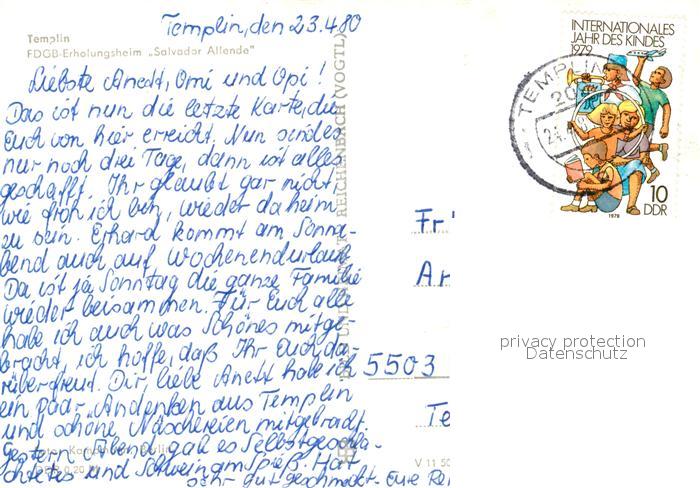 Templin, den 23.4.80
Templin
FDGB-Erholungsheim „Salvador Allende“
Liebste Anett, Omi und Opi!
Das ist nun die letzte Karte, die
Euch von hier erreicht. Nun sind es
nur noch drei Tage, dann ist alles
geschafft. Ihr glaubt gar nicht,
wie froh ich bin, wieder daheim
zu sein. Erhard kommt am Sonna-
bend auch auf Wochenendurlaub
Da ist ja Sonntag die ganze Familie
wieder beisammen. Für Euch alle
habe ich auch was Schönes mitge-
bracht, ich hoffe, daß Ihr Euch da-
rüber freut. Dir liebe Anett habe ich
ein paar „Andenken aus Templin
und schöne Näschereien mitgebracht.
Gestern Abend gab es Selbstgeschla-
chtetes und Schwein am Spieß. Hat
sehr gut geschmeckt. Eure
REICHENBACH (VOGTL)
V 11 50
INTERNATIONALES
JAHR DES KINDES
1979
10
DDR
1979
TEMPLIN
20
Fr
Ar
5503
Te
privacy protection
Datenschutz